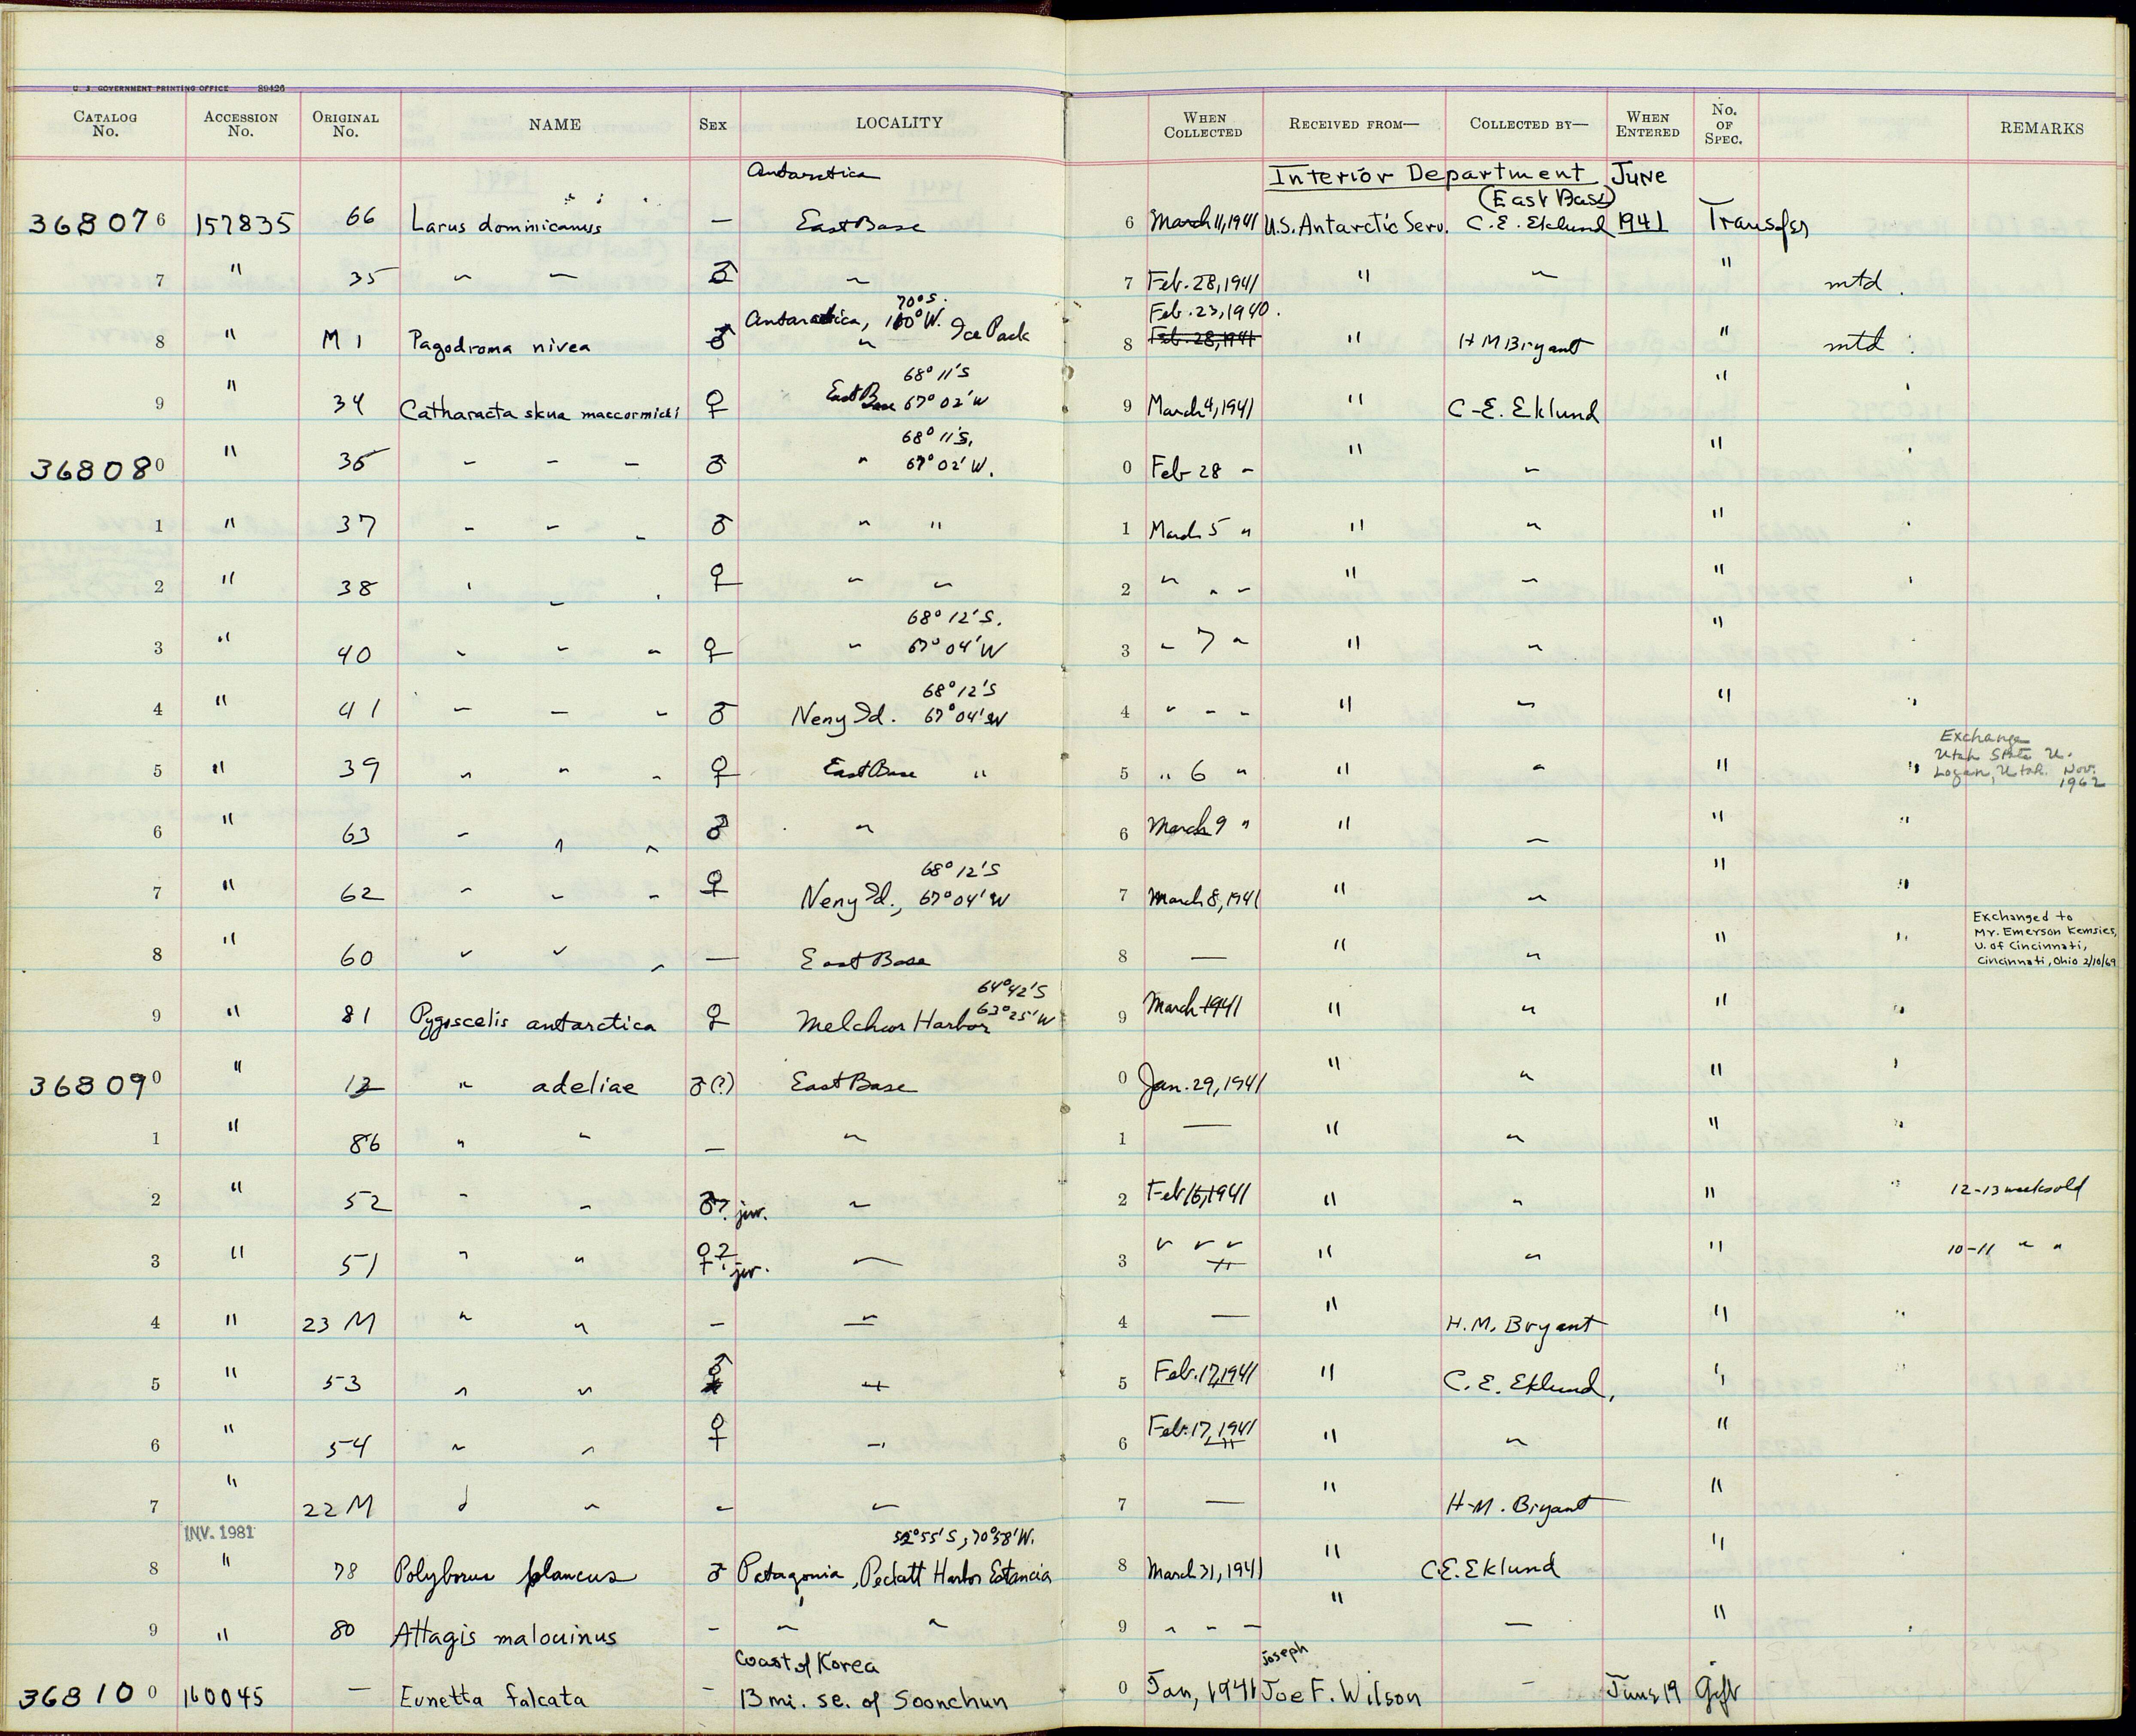 U. S. GOVERNMENT PRINTING OFFICE 89426
CATALOG No. ACCESSION No. ORIGINAL No. NAME SEX LOCALITY WHEN COLLECTED RECEIVED FROM— COLLECTED BY— WHEN ENTERED No. OF SPEC. REMARKS
Antarctica Interior Department June
(East Base)
368076 157835 66 Larus dominicanus — East Base 6 March 11, 1941 U.S. Antarctic Serv. C. E. Eklund 1941 Transfer
7 " 35 " " ♂ " 7 Feb. 28, 1941 " " " mtd.
70° S. Feb. 23, 1940.
8 " M 1 Pagodroma nivea ♂ Antarctica, 160° W. Ice Pack " 8 Feb. 28, 1941 " H M Bryant " mtd.
68° 11' S
9 " 34 Catharacta skua maccormicki ♀ East Base 67° 02' W 9 March 4, 1941 " C. E. Eklund "
68° 11' S.
368080 " 36 " " " ♂ " 67° 02' W. 0 Feb 28 " " " "
1 " 37 " " " ♂ " " 1 March 5 " " " "
2 " 38 " " " ♀ " " 2 " " " " " "
68° 12' S.
3 " 40 " " " ♀ " 67° 04' W 3 " 7 " " " "
68° 12' S
4 " 41 " " " ♂ Neny Id. 67° 04' W 4 " " " " " "
Exchange
Utah State U.
5 " 39 " " " ♀ East Base " 5 " 6 " " " " " Logan, Utah. Nov.
1962
6 " 63 " " " ♂ " 6 March 9 " " " " "
68° 12' S
7 " 62 " " " ♀ Neny Id., 67° 04' W 7 March 8, 1941 " " " "
Exchanged to
Mr. Emerson Kemsies,
U. of Cincinnati,
8 " 60 " " " — East Base 8 — " " " " Cincinnati, Ohio 2/10/69
64° 42' S
9 " 81 Pygoscelis antarctica ♀ Melchior Harbor 63° 25' W 9 March 1941 " " " "
368090 " 12 " adeliae ♂(?) East Base 0 Jan. 29, 1941 " " "
1 " 86 " " — " 1 — " " " "
2 " 52 " " ♂? juv. " 2 Feb 16, 1941 " " " " 12-13 weeks old
3 " 51 " " ♀? juv. " 3 " " " " " " 10-11 " "
4 " 23 M " " — " 4 — " H. M. Bryant " "
5 " 53 " " ♂ " 5 Feb. 17, 1941 " C. E. Eklund, " "
6 " 54 " " ♀ " 6 Feb. 17, 1941 " " "
7 " 22 M " " — " 7 — " H. M. Bryant "
INV. 1981 52° 55' S; 70° 58' W.
8 " 78 Polyborus plancus ♂ Patagonia, Peckett Harbor Estancia 8 March 31, 1941 " C. E. Eklund "
9 " 80 Attagis malouinus — " " 9 " " " " — "
Coast of Korea Joseph
368100 160045 — Eunetta falcata — 13 mi. se. of Soonchun 0 Jan, 1941 Joe F. Wilson — June 19 Gift